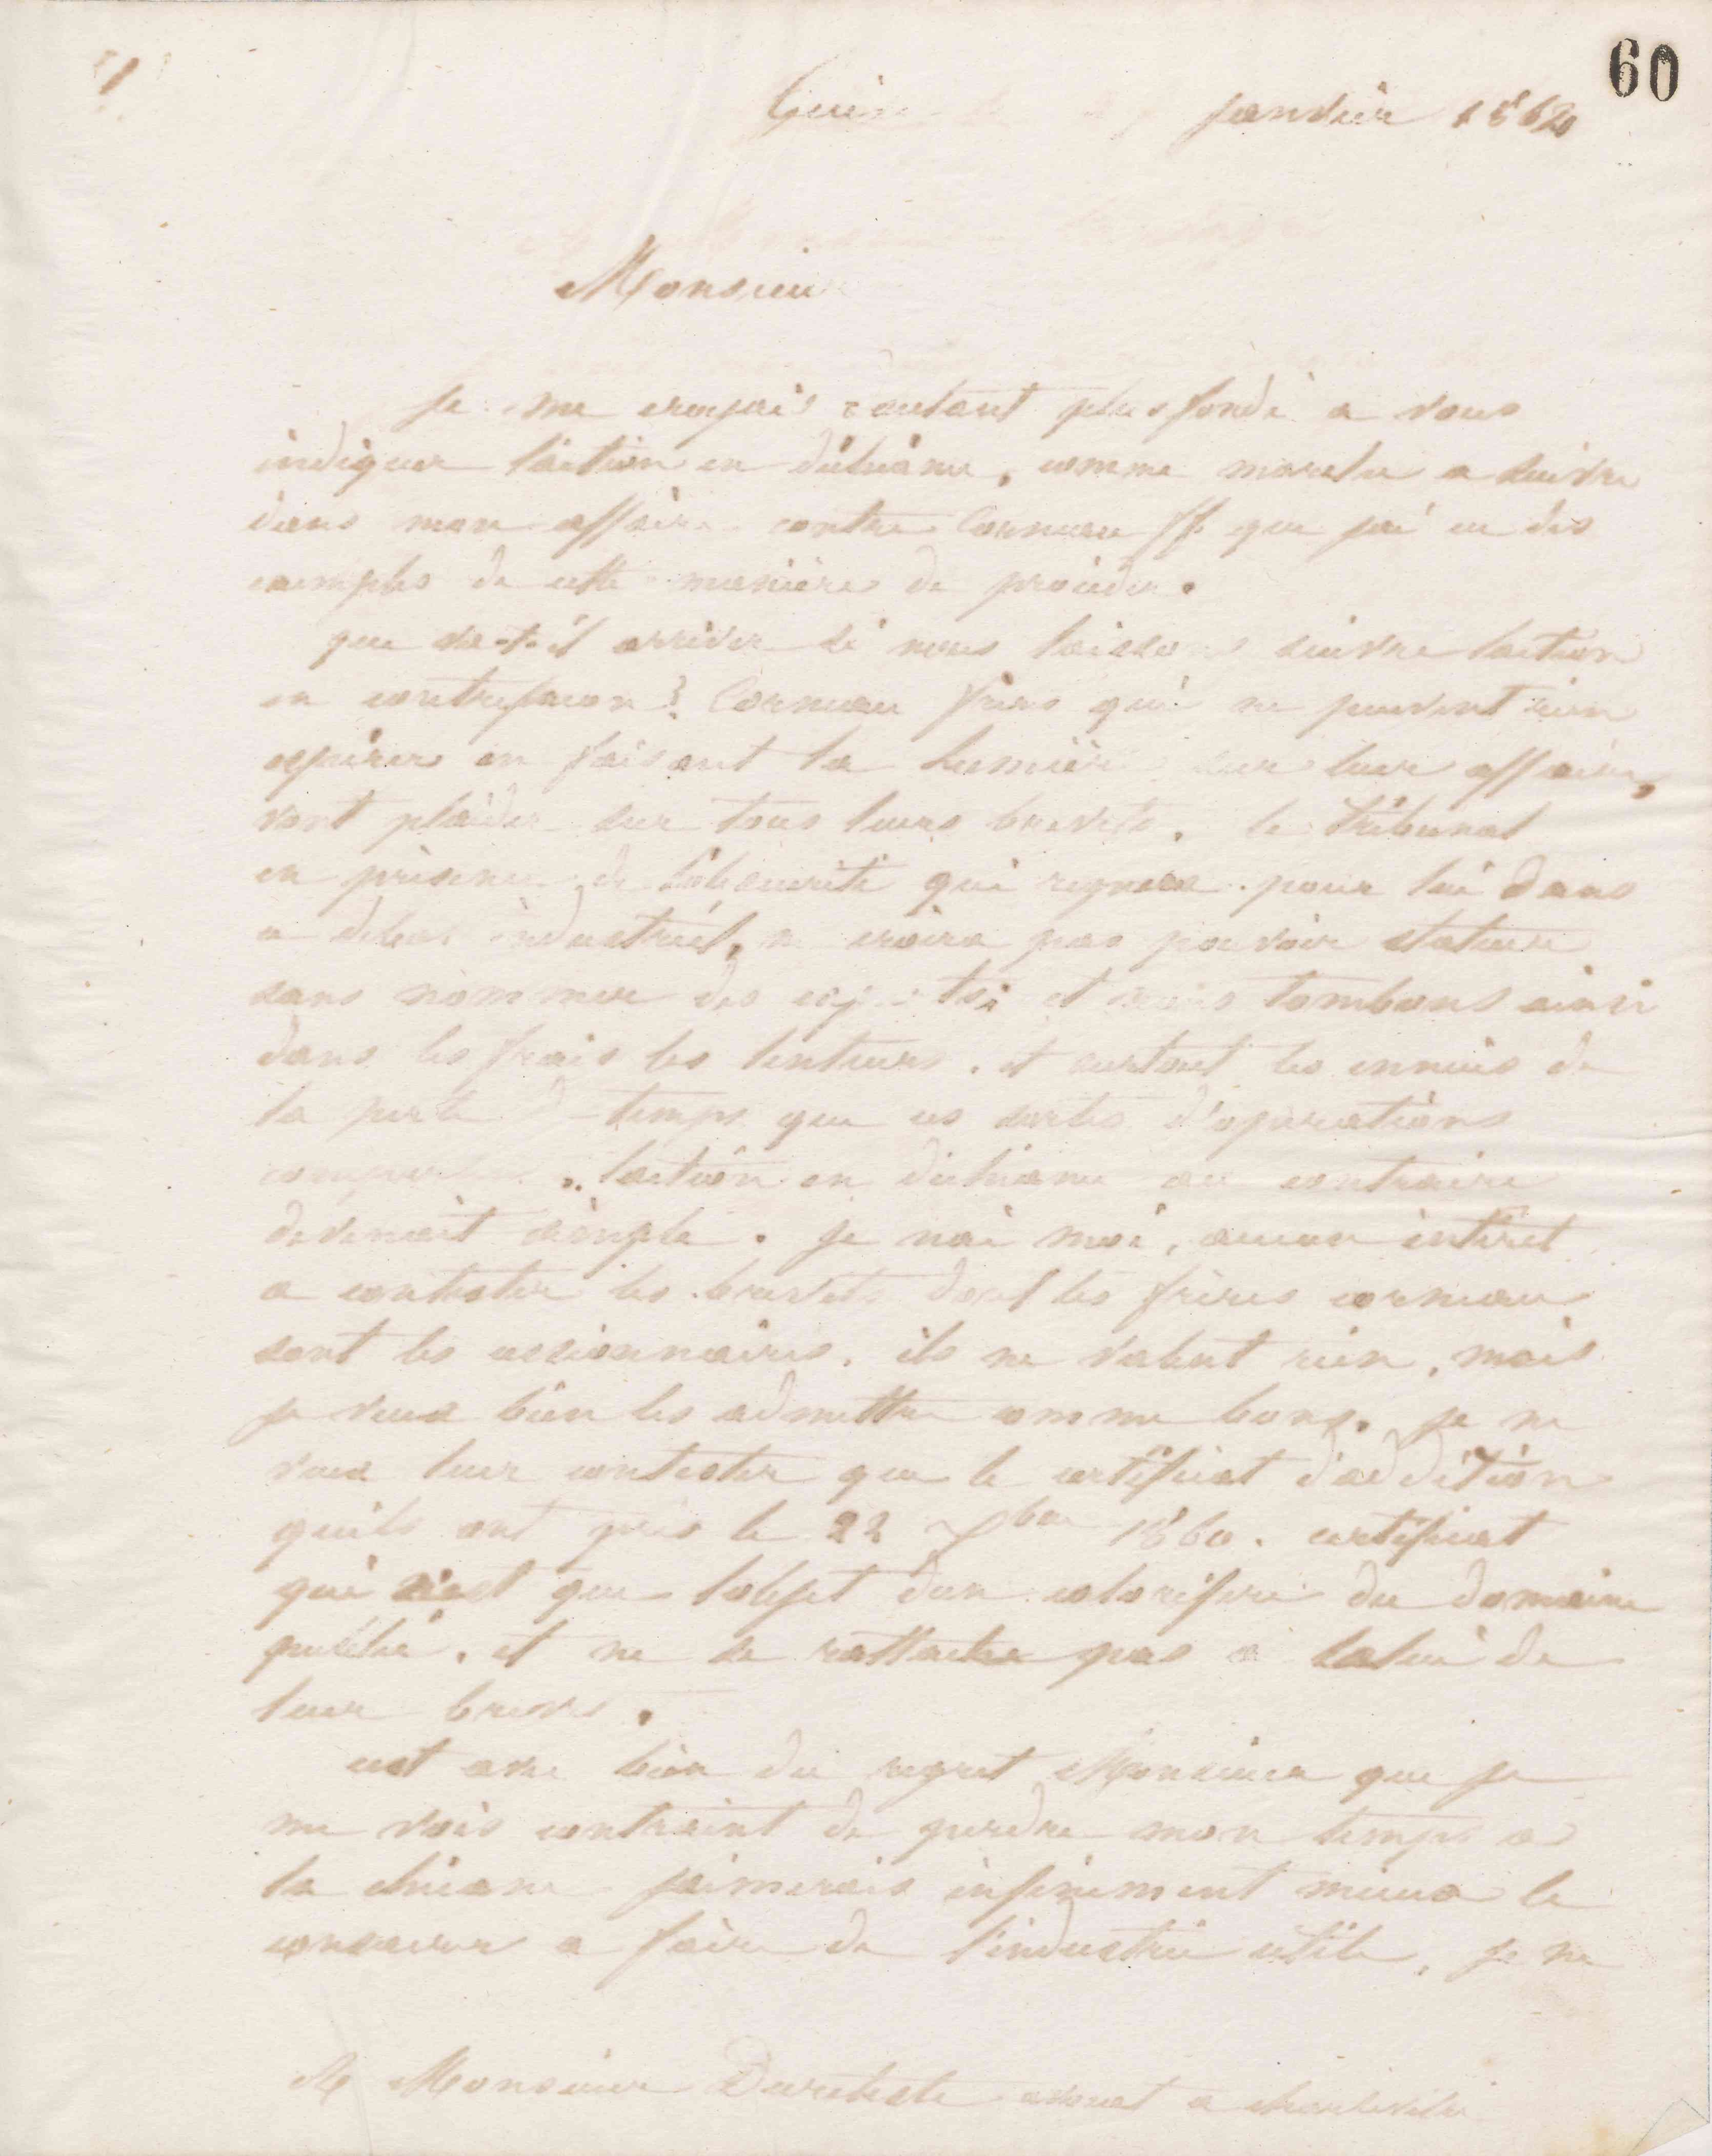 60
Guise janvier 1862
Monsieur
Je me croyais d'autant plus fondé a vous
indiquer laction en déchéance, comme marche a suivre
dans mon affaire contre Corneau ff que jai eu des
exemples de cette manière de procéder.
que va-t-il arriver si nous laissons suivre laction
en contrefacon? Corneau frères qui ne peuvent rien
espérer en faisant la lumière sur leur affaire,
vont plaider sur tous leurs brevets. le tribunal
en présence de l'obscurité qui regnera pour lui dans
ce debat industriel, ne croira pas pouvoir statuer
sans nommer des experts; et nous tombons ainsi
dans les frais les lenteurs. et surtout les ennuis de
la perte de temps que ces sortes d'opérations
. laction en déchéance au contraire
devenait simple. je nai moi, aucun intéret
a contester les brevets dont les frères corneau
sont les cessionnaires. ils ne valent rien, mais
je veux bien les admettre comme bons. je ne
veux leur contester que le certificat d'addition
quils ont pris le 22 7bre 1860. certificat
qui n'est que lobjet dun calorifère du domaine
public. et ne se rattache pas a celui de
leur brevet.
cest avec bien du regret Monsieur que je
me vois contraint de perdre mon temps a
la chicane jaimerais infiniment mieux le
consacrer a faire de l'industrie utile, je ne
A Monsieur avouet a charleville